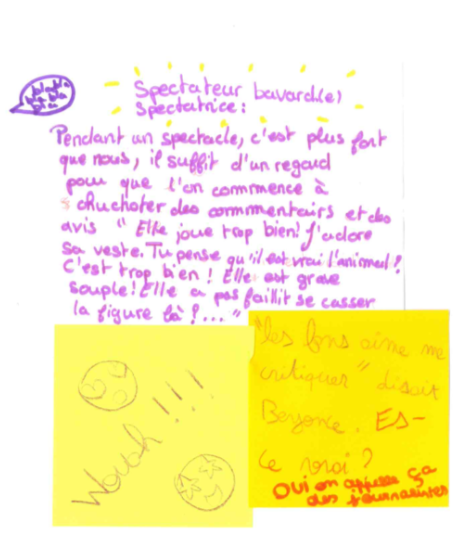 blabla
bla bla
bla
Spectateur bavard(e)
Spectatrice :
Pendant un spectacle, c'est plus fort
que nous, il suffit d'un regard
pour que l'on commence à
chuchoter des commentairs et des
avis " Elle joue trop bien! J'adore
sa veste. Tu pense qu'il est vrai l'animal ?
C'est trop bien ! Elle est grave
souple! Elle a pas faillit se casser
la figure là ?... "
Wouah !!!
"les fans aime me
critiquer" disait
Beyonce. Es-
ce vrai ?
Oui on appelle ça
des journalistes